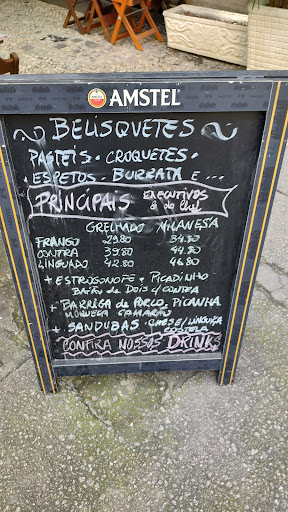 AMSTEL
BELISQUETES
PASTÉIS · CROQUETES ·
· ESPETOS · BURRATA E ...
PRINCIPAIS EXECUTIVOS
& do Chef
GRELHADO MILANESA
FRANGO 29.80 34.80
CONTRA 39.80 44.80
LINGUADO 42.80 46.80
+ ESTROGONOFE + PICADINHO
BAIÃO DE DOIS C/ CONTRA
+ BARRIGA DE PORCO, PICANHA
MOQUECA CAMARÃO
+ SANDUBAS - CHESE/LINGUIÇA
COSTELA
CONFIRA NOSSOS DRINKS